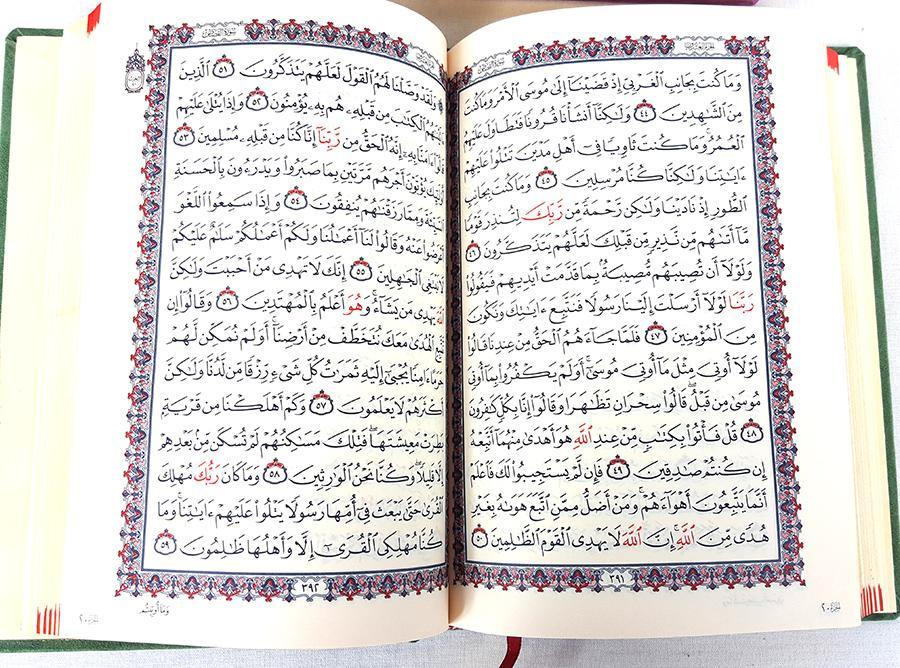 وَمَا كُنتَ بِجَانِبِ ٱلْغَرْبِىِّ إِذْ قَضَيْنَآ إِلَىٰ مُوسَى ٱلْأَمْرَ وَمَا كُنتَ
مِنَ ٱلشَّـٰهِدِينَ ٤٤ وَلَـٰكِنَّآ أَنشَأْنَا قُرُونًا فَتَطَاوَلَ عَلَيْهِمُ
ٱلْعُمُرُ ۚ وَمَا كُنتَ ثَاوِيًا فِىٓ أَهْلِ مَدْيَنَ تَتْلُوا۟ عَلَيْهِمْ
ءَايَـٰتِنَا وَلَـٰكِنَّا كُنَّا مُرْسِلِينَ ٤٥ وَمَا كُنتَ بِجَانِبِ
ٱلطُّورِ إِذْ نَادَيْنَا وَلَـٰكِن رَّحْمَةً مِّن رَّبِّكَ لِتُنذِرَ قَوْمًا
مَّآ أَتَىٰهُم مِّن نَّذِيرٍ مِّن قَبْلِكَ لَعَلَّهُمْ يَتَذَكَّرُونَ ٤٦
وَلَوْلَآ أَن تُصِيبَهُم مُّصِيبَةٌۢ بِمَا قَدَّمَتْ أَيْدِيهِمْ فَيَقُولُوا۟
رَبَّنَا لَوْلَآ أَرْسَلْتَ إِلَيْنَا رَسُولًا فَنَتَّبِعَ ءَايَـٰتِكَ وَنَكُونَ
مِنَ ٱلْمُؤْمِنِينَ ٤٧ فَلَمَّا جَآءَهُمُ ٱلْحَقُّ مِنْ عِندِنَا قَالُوا۟
لَوْلَآ أُوتِىَ مِثْلَ مَآ أُوتِىَ مُوسَىٰٓ ۚ أَوَلَمْ يَكْفُرُوا۟ بِمَآ أُوتِىَ
مُوسَىٰ مِن قَبْلُ ۖ قَالُوا۟ سِحْرَانِ تَظَـٰهَرَا وَقَالُوٓا۟ إِنَّا بِكُلٍّ كَـٰفِرُونَ
٤٨ قُلْ فَأْتُوا۟ بِكِتَـٰبٍ مِّنْ عِندِ ٱللَّهِ هُوَ أَهْدَىٰ مِنْهُمَآ أَتَّبِعْهُ
إِن كُنتُمْ صَـٰدِقِينَ ٤٩ فَإِن لَّمْ يَسْتَجِيبُوا۟ لَكَ فَٱعْلَمْ
أَنَّمَا يَتَّبِعُونَ أَهْوَآءَهُمْ ۚ وَمَنْ أَضَلُّ مِمَّنِ ٱتَّبَعَ هَوَىٰهُ بِغَيْرِ
هُدًى مِّنَ ٱللَّهِ ۚ إِنَّ ٱللَّهَ لَا يَهْدِى ٱلْقَوْمَ ٱلظَّـٰلِمِينَ ٥٠
٣٩١
الجزء ٢٠
سورة القصص
وَلَقَدْ وَصَّلْنَا لَهُمُ ٱلْقَوْلَ لَعَلَّهُمْ يَتَذَكَّرُونَ ٥١ ٱلَّذِينَ
ٱلْكِتَـٰبَ مِن قَبْلِهِۦ هُم بِهِۦ يُؤْمِنُونَ ٥٢ وَإِذَا يُتْلَىٰ عَلَيْهِمْ
ءَامَنَّا بِهِۦٓ إِنَّهُ ٱلْحَقُّ مِن رَّبِّنَآ إِنَّا كُنَّا مِن قَبْلِهِۦ مُسْلِمِينَ ٥٣
يُؤْتَوْنَ أَجْرَهُم مَّرَّتَيْنِ بِمَا صَبَرُوا۟ وَيَدْرَءُونَ بِٱلْحَسَنَةِ
وَمِمَّا رَزَقْنَـٰهُمْ يُنفِقُونَ ٥٤ وَإِذَا سَمِعُوا۟ ٱللَّغْوَ
عَنْهُ وَقَالُوا۟ لَنَآ أَعْمَـٰلُنَا وَلَكُمْ أَعْمَـٰلُكُمْ سَلَـٰمٌ عَلَيْكُمْ
لَا نَبْتَغِى ٱلْجَـٰهِلِينَ ٥٥ إِنَّكَ لَا تَهْدِى مَنْ أَحْبَبْتَ وَلَـٰكِنَّ
ٱللَّهَ يَهْدِى مَن يَشَآءُ ۚ وَهُوَ أَعْلَمُ بِٱلْمُهْتَدِينَ ٥٦ وَقَالُوٓا۟ إِن
نَّتَّبِعِ ٱلْهُدَىٰ مَعَكَ نُتَخَطَّفْ مِنْ أَرْضِنَآ ۚ أَوَلَمْ نُمَكِّن لَّهُمْ
حَرَمًا ءَامِنًا يُجْبَىٰٓ إِلَيْهِ ثَمَرَٰتُ كُلِّ شَىْءٍ رِّزْقًا مِّن لَّدُنَّا وَلَـٰكِنَّ
أَكْثَرَهُمْ لَا يَعْلَمُونَ ٥٧ وَكَمْ أَهْلَكْنَا مِن قَرْيَةٍۭ
بَطِرَتْ مَعِيشَتَهَا ۖ فَتِلْكَ مَسَـٰكِنُهُمْ لَمْ تُسْكَن مِّنۢ بَعْدِهِمْ
إِلَّا قَلِيلًا ۖ وَكُنَّا نَحْنُ ٱلْوَٰرِثِينَ ٥٨ وَمَا كَانَ رَبُّكَ مُهْلِكَ
ٱلْقُرَىٰ حَتَّىٰ يَبْعَثَ فِىٓ أُمِّهَا رَسُولًا يَتْلُوا۟ عَلَيْهِمْ ءَايَـٰتِنَا ۚ وَمَا
كُنَّا مُهْلِكِى ٱلْقُرَىٰٓ إِلَّا وَأَهْلُهَا ظَـٰلِمُونَ ٥٩
٣٩٢
وَمَا أُوتِيتُم
الجزء ٢٠